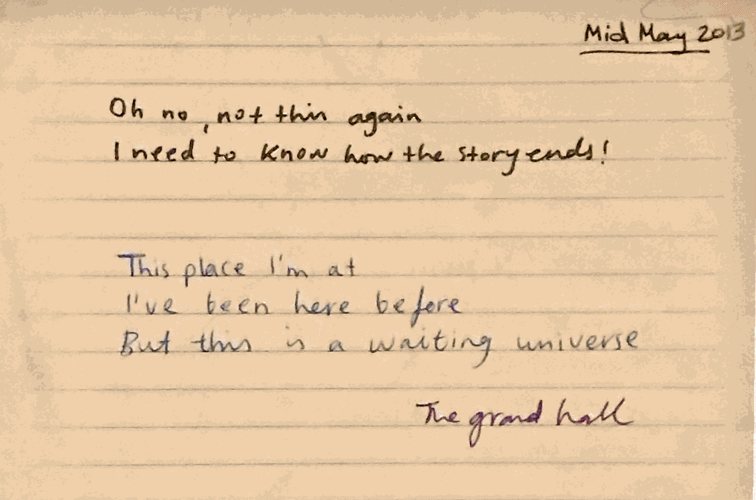 Mid May 2013
Oh no, not this again
I need to know how the story ends!
This place I'm at
I've been here before
But this is a waiting universe
The grand hall